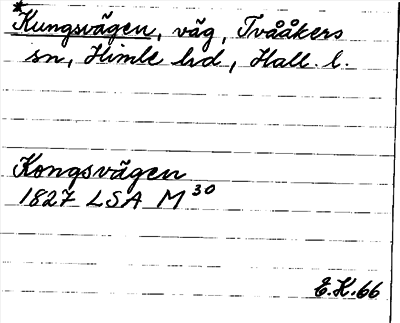 *Kungsvägen, väg, Tvååkers
sn, Himle hrd, Hall. l.
Kongsvägen
1827 LSA M 30
E.K.66